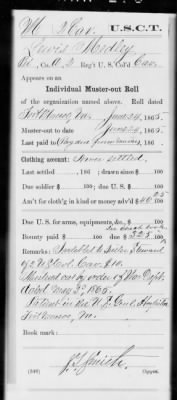 M 2 Cav. U.S.C.T.
Lewis Medley
Pvt, Co. 2 Reg't U.S. Col'd Cav.
Appears on an
Individual Muster-out Roll
of the organization named above. Roll dated
Fort Monroe, Va. June 24, 1865.
Muster-out to date June 24, 1865.
Last paid to Pay due from 186 .
Clothing account: Never settled,
Last settled , 186 ; drawn since $ 100
Due soldier $ 100; due U.S. $ 100
Am't for cloth'g in kind or money adv'd $ 40 25/100
Due U.S. for arms, equipments, &c., $ 100
Bounty paid $ 100; due $ 100
Remarks: Indebted to Sutler
of 2 U.S. Col. Cav. $10.
Mustered out by order of War Dept.
dated May 3, 1865.
Patient in the U.S. Genl. Hospital
Fort Monroe, Va.
Book mark:
Smith
(346) Copyist.